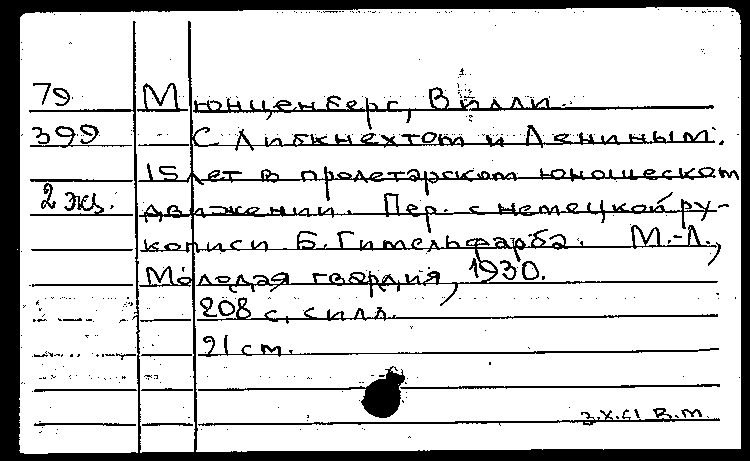 79 Мюнценберг, Вилли.
399 С Либкнехтом и Лениным.
15 лет в пролетарском юношеском
2 экз. движении. Пер. с немецкой ру-
кописи Б. Гимельфарба. М.-Л.,
Молодая гвардия, 1930.
208 с. с илл.
21 см.
3.X.61 В.М.